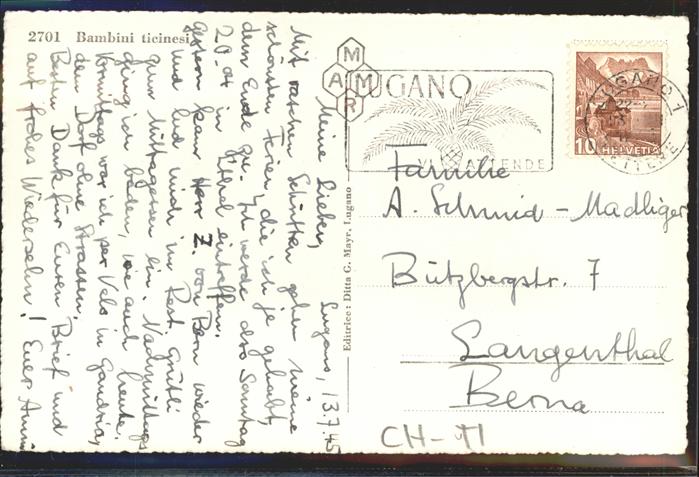 2701 Bambini ticinesi
Lugano, 13.7.45
Meine Lieben,
Mit raschen Schritten gehen meine
schönsten Ferien, die ich je gehabt,
dem Ende zu. Ich werde das Sonntag
20.04 in L'thal eintreffen.
Gestern kam Herr Z. von Bern wieder
und lud mich im Rest. Grütli
zum Mittagessen ein. Nachmittags
ging ich baden, wie auch heute.
Vormittags war ich per Velo in Gandria,
dem Dorf ohne Strassen.
Besten Dank für Euren Brief und
auf frohes Wiedersehn! Euer Anni
Editrice: Ditta G. Mayr, Lugano
MAMAR
LUGANO
VI ATTENDE
LUGANO 1
10 HELVETIA
Familie
A. Schmid-Madliger
Bützbergstr. 7
Langenthal
Berna
CH-TI